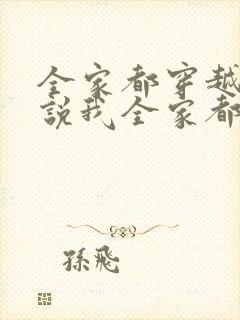 全家都穿越
說我全家都
孫飛